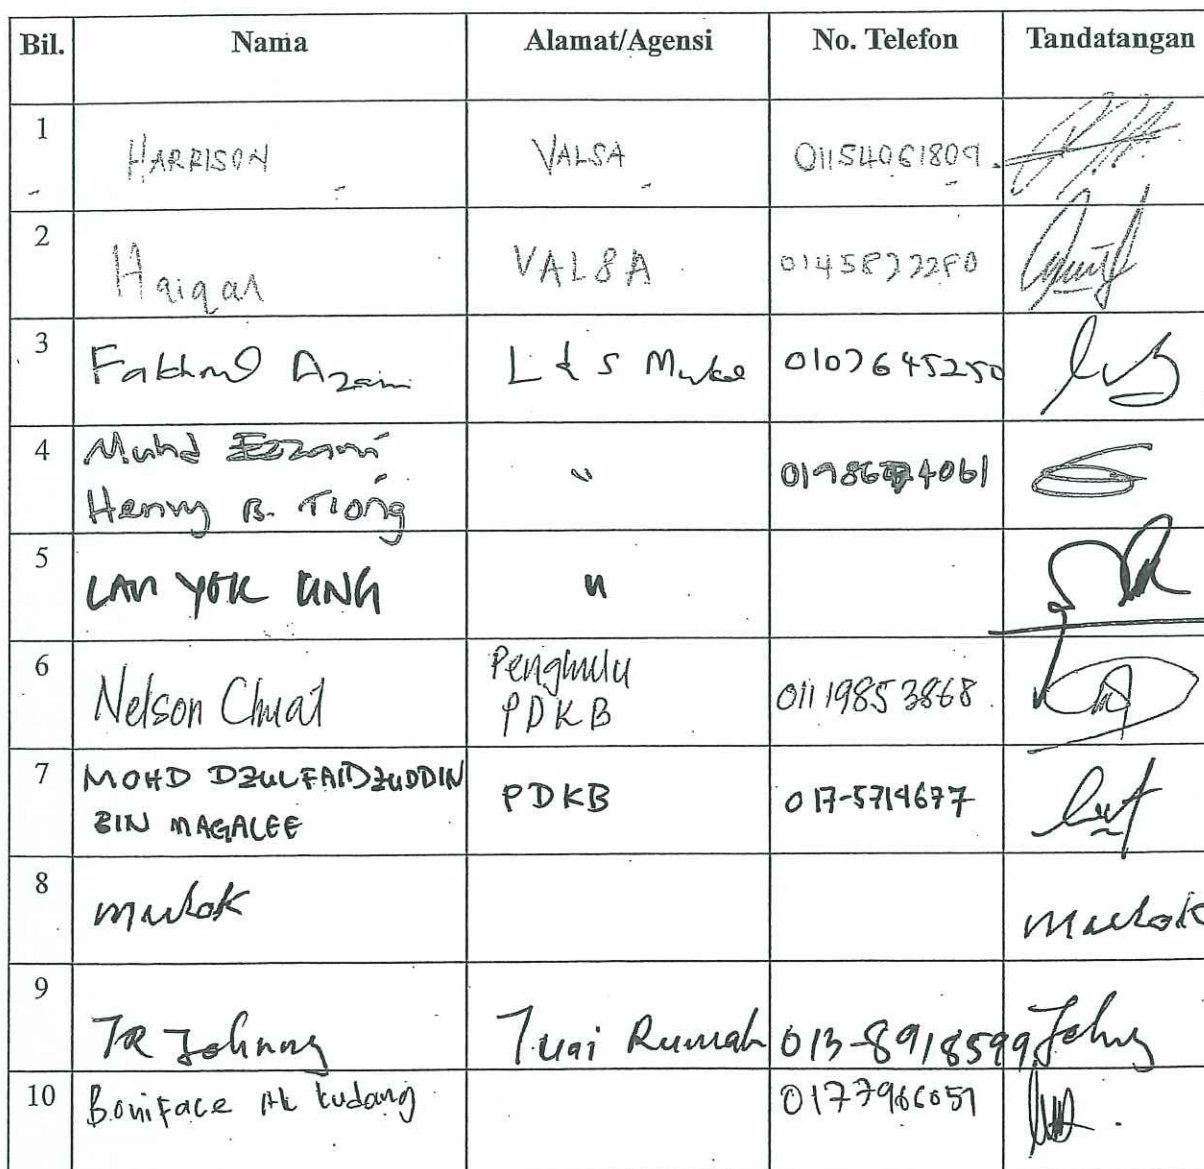 Bil. Nama Alamat/Agensi No. Telefon Tandatangan
1 HARRISON VALSA 01154061809
2 Haiqal VALSA
3 Fakhrul Azam L & S 0107645250
4 Muhd Ezzami
Henry B. Tiong "
5 "
6 Nelson Chuat Penghulu
PDKB 01119853868
7 MOHD DZULFAIDZUDDIN
BIN MAGALEE PDKB 017-5714677
8 mulok mulok
9 TR Johnny Tuai Rumah 013-8918599 Johny
10 Boniface Ak kudang 0177966051